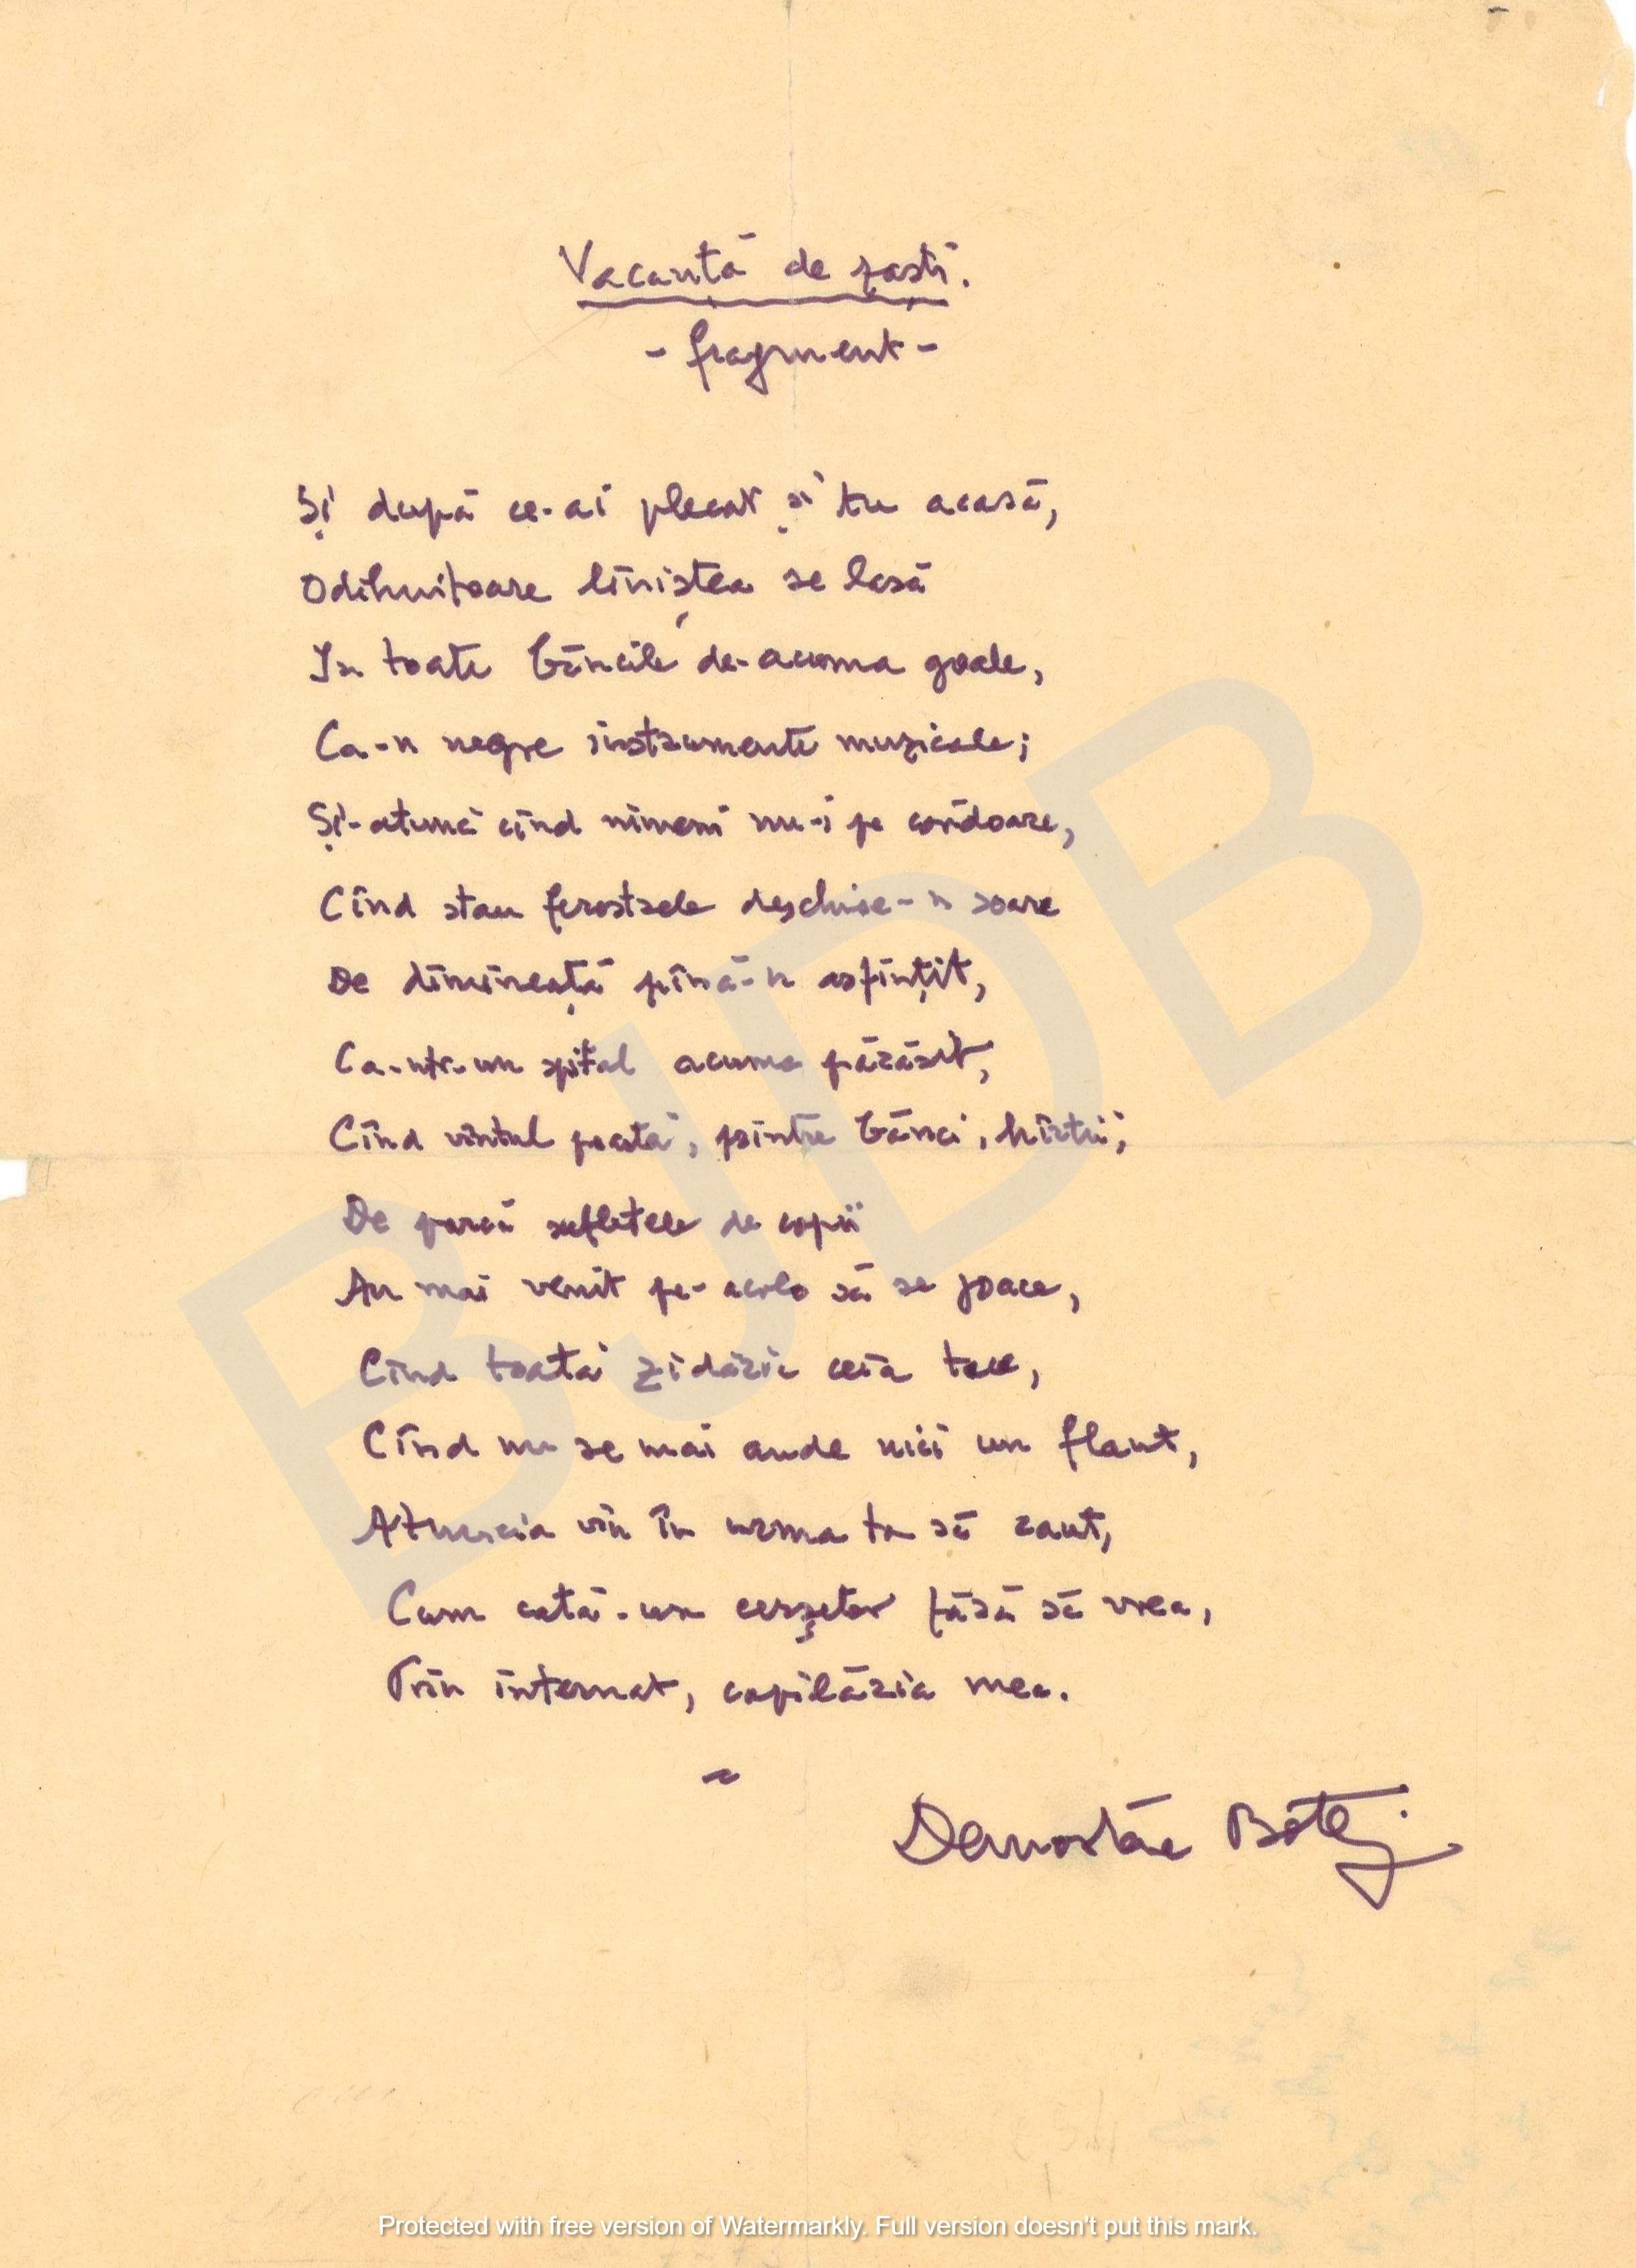 Vacanță de paști.
- fragment -
Și după ce-ai plecat și tu acasă,
Odihnitoare liniștea se lasă
In toate băncile de-acuma goale,
Ca-n negre instrumente muzicale;
Și-atunci cînd nimeni nu-i pe coridoare,
Cînd stau ferestrele deschise-n soare
De dimineață pînă-n asfințit,
Ca-ntr-un spital acuma părăsit,
Cînd vîntul poartă, printre bănci, hîrtii,
De parcă sufletele de copii
Au mai venit pe-acolo să se joace,
Cînd toată zidăria ceia tace,
Cînd nu se mai aude nici un flaut,
Atuncia vin în urma ta să caut,
Cum cată-un cerșetor fără să vrea,
Prin internat, copilăria mea.
Demostene Botez
BJDB
Protected with free version of Watermarkly. Full version doesn't put this mark.